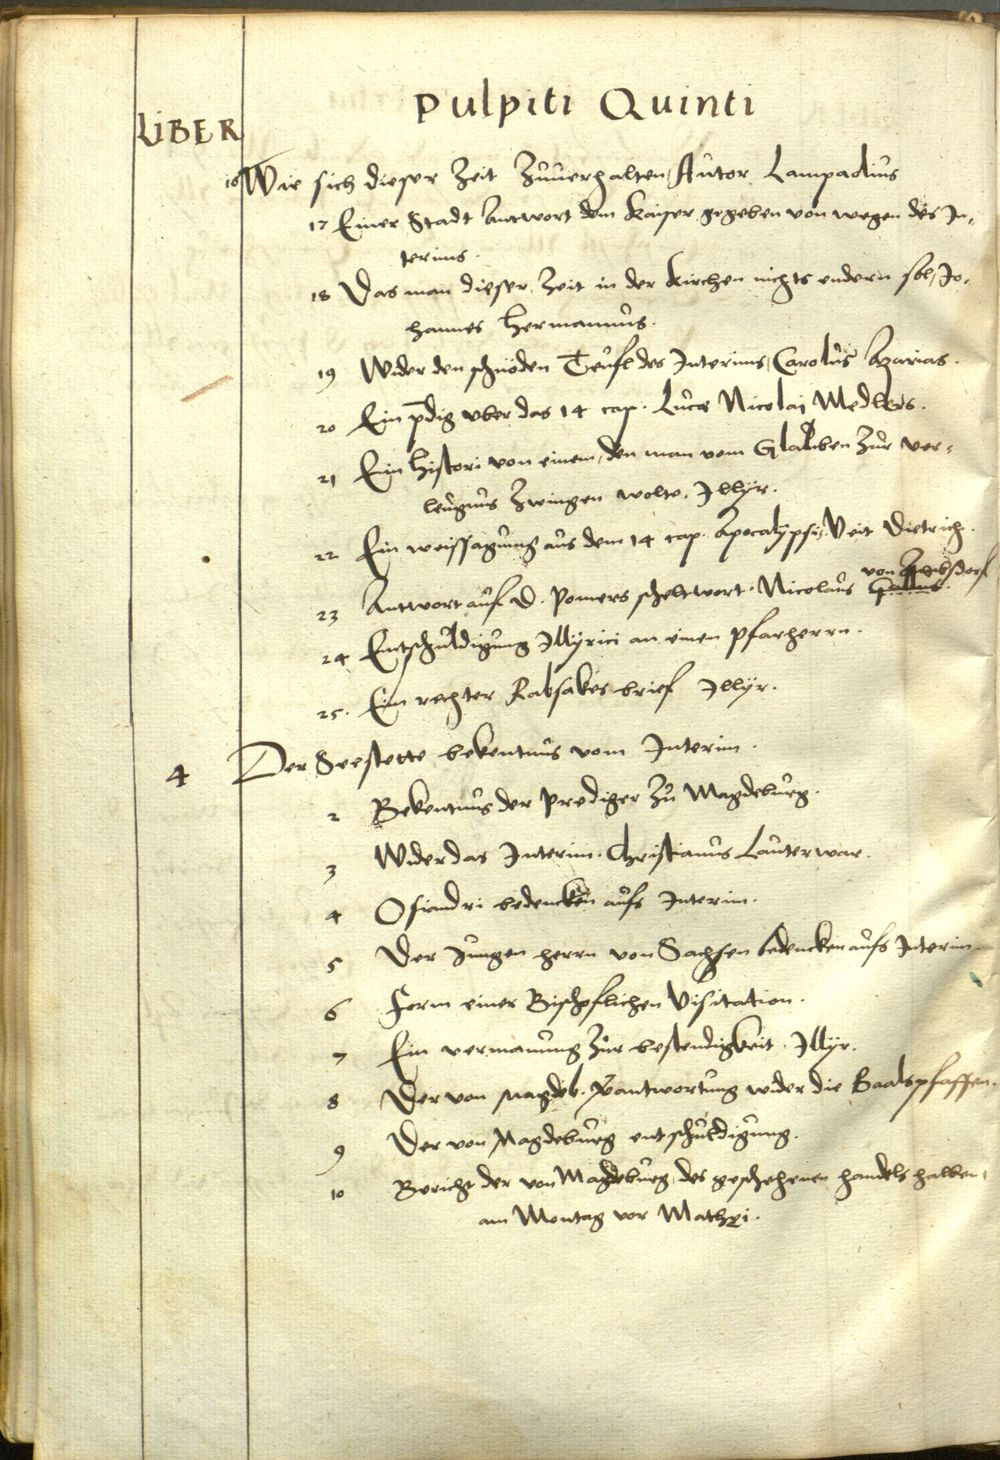 Pulpiti Quinti
LIBER
16 Wie sich dieser Zeit Zuuerhalten, Autor Lampadius
17 Einer Stadt Antwort dem Kaiser gegeben von wegen des In-
terims.
18 Das man dieser Zeit in der Kirchen nichts endern sol, Jo-
hannes Hermannus.
19 Wider den schnöden Teufel des Interims, Carolus Azarias.
20 Ein pdig vber das 14 cap. Lucæ Nicolai Medlers.
21 Ein Histori von einem, den man vom Glauben Zur ver-
leugnus Zwingen wolte. Illyr.
22 Ein weissagung aus dem 14 cap. Apocalypsis, Veit Dietrich.
von Ambsdorf
23 Antwort auf D. Pomers scheltwort. Nicolaus Gallus.
24 Entschuldigung Illyrici an einen Pfarherrn.
25. Ein rechter Rabsakes brief Illyr.
4 Der Seestette bekentnus vom Interim.
2 Bekentnus der Prediger Zu Magdeburg.
3 Wider das Interim. Christianus Lauterwar.
4 Osiandri bedencken aufs Interim.
5 Der Jungen herrn von Sachsen bedencken aufs Interim.
6 Form einer Bischoflichen Visitation.
7 Ein vermanung Zur bestendigkeit. Illyr.
8 Der von Magdeb. Vantwortung wider die Baalspfaffen.
9 Der von Magdeburg entschuldigung.
10 Bericht der von Magdeburg, des geschehenen handels halben,
am Montag vor Mathei.